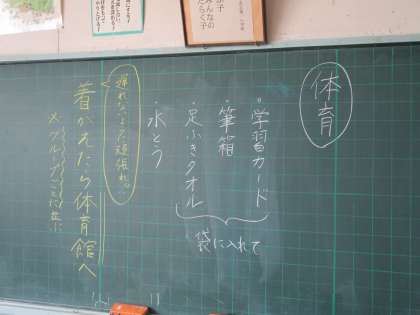 体育
・学習カード
・筆箱
・足ふきタオル
袋に入れて
・水とう
遅れないよう頑張れ。
着がえたら体育館へ
※グループごとに並ぶ